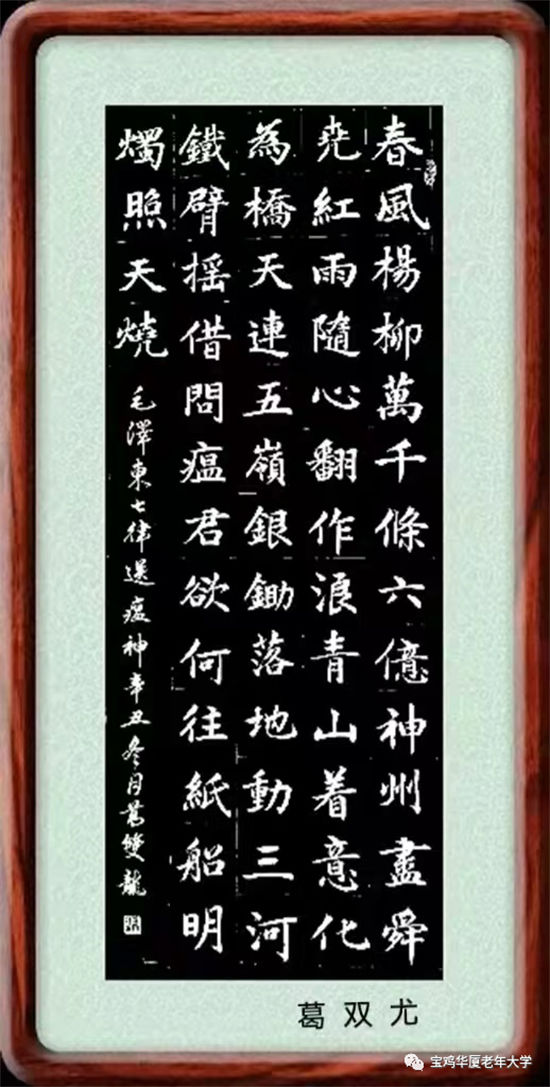 春風楊柳萬千條六億神州盡舜
尭紅雨隨心翻作浪青山着意化
為橋天連五嶺銀鋤落地動三河
鐵臂摇借問瘟君欲何往紙船明
燭照天燒
毛澤東七律送瘟神辛丑冬月葛雙龍
葛双尤
宝鸡华厦老年大学